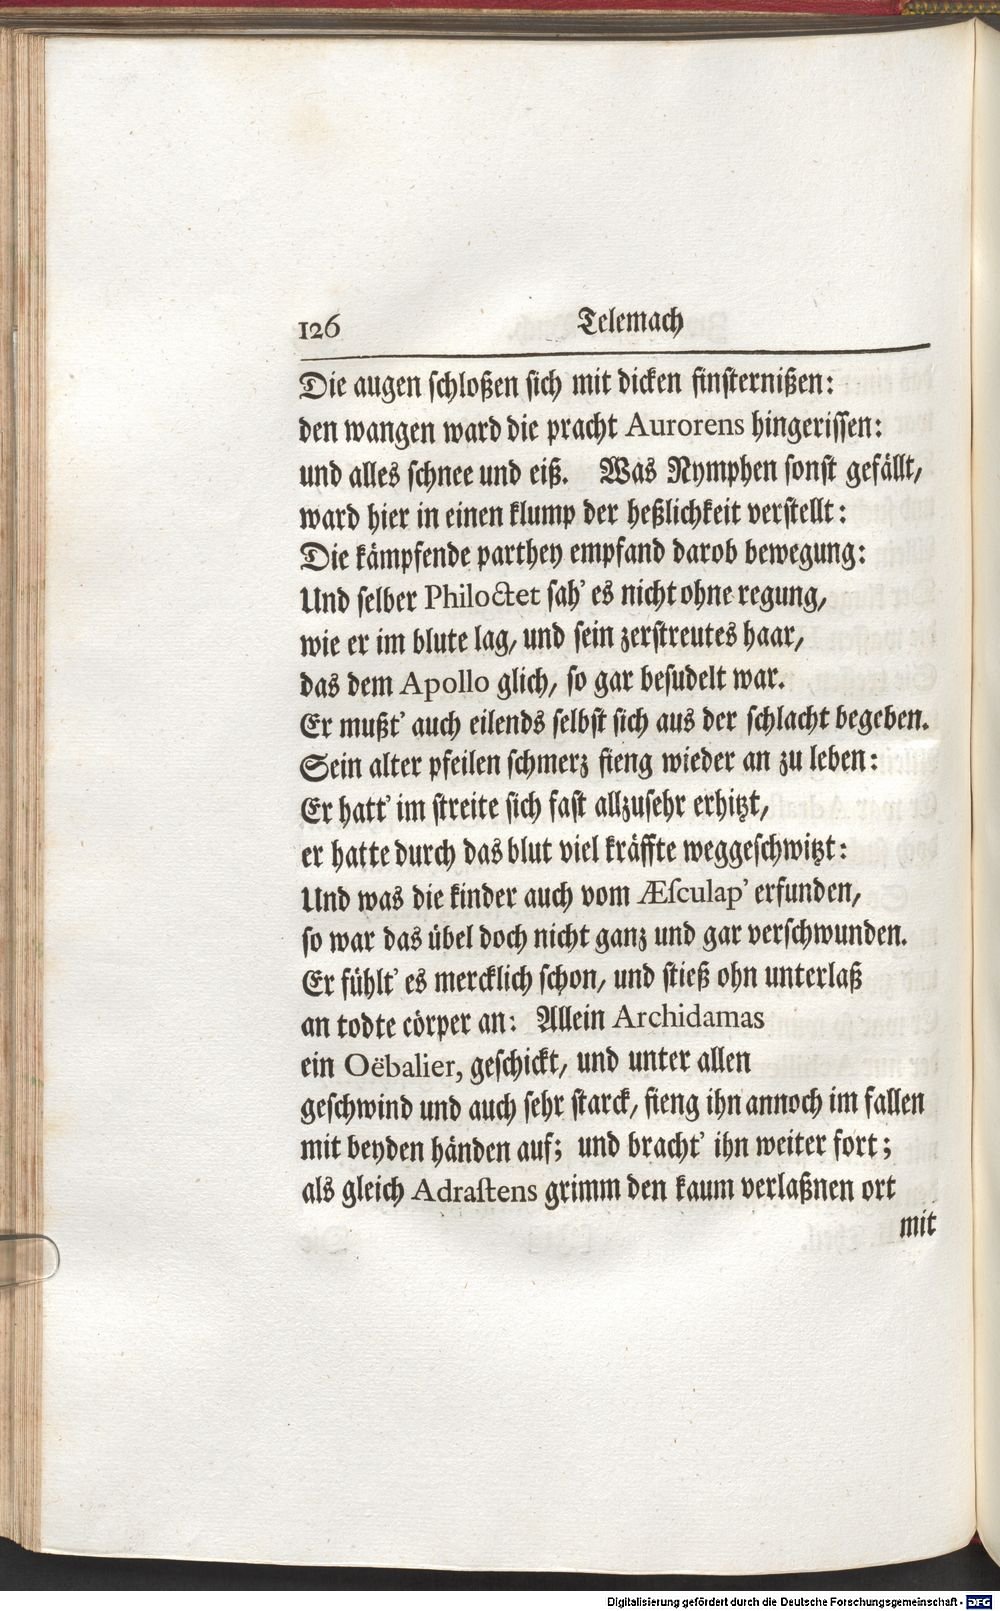 126 Telemach
Die augen schloßen sich mit dicken finsternißen:
den wangen ward die pracht Aurorens hingerissen:
und alles schnee und eiß. Was Nymphen sonst gefällt,
ward hier in einen klump der heßlichkeit verstellt:
Die kämpfende parthey empfand darob bewegung:
Und selber Philoctet sah' es nicht ohne regung,
wie er im blute lag, und sein zerstreutes haar,
das dem Apollo glich, so gar besudelt war.
Er mußt' auch eilends selbst sich aus der schlacht begeben.
Sein alter pfeilen schmerz fieng wieder an zu leben:
Er hatt' im streite sich fast allzusehr erhitzt,
er hatte durch das blut viel kräffte weggeschwitzt:
Und was die kinder auch vom Æsculap' erfunden,
so war das übel doch nicht ganz und gar verschwunden.
Er fühlt' es mercklich schon, und stieß ohn unterlaß
an todte cörper an: Allein Archidamas
ein Oëbalier, geschickt, und unter allen
geschwind und auch sehr starck, fieng ihn annoch im fallen
mit beyden händen auf; und bracht' ihn weiter fort;
als gleich Adrastens grimm den kaum verlaßnen ort
mit
Digitalisierung gefördert durch die Deutsche Forschungsgemeinschaft - DFG